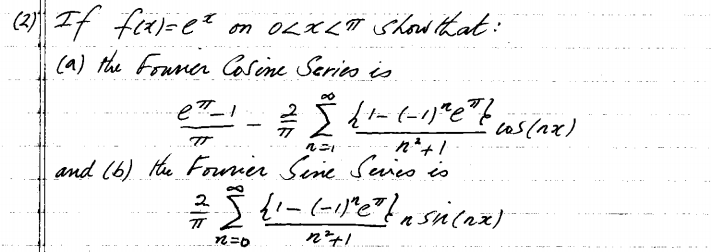 (2) If f(x)=e^x on 0<x<π show that:
(a) the Fourier Cosine Series is
(e^π-1)/π - 2/π ∑_{n=1}^{∞} {1-(-1)^n e^π}/(n²+1) cos(nx)
and (b) the Fourier Sine Series is
2/π ∑_{n=0}^{∞} {1-(-1)^n e^π}/(n²+1) n sin(nx)